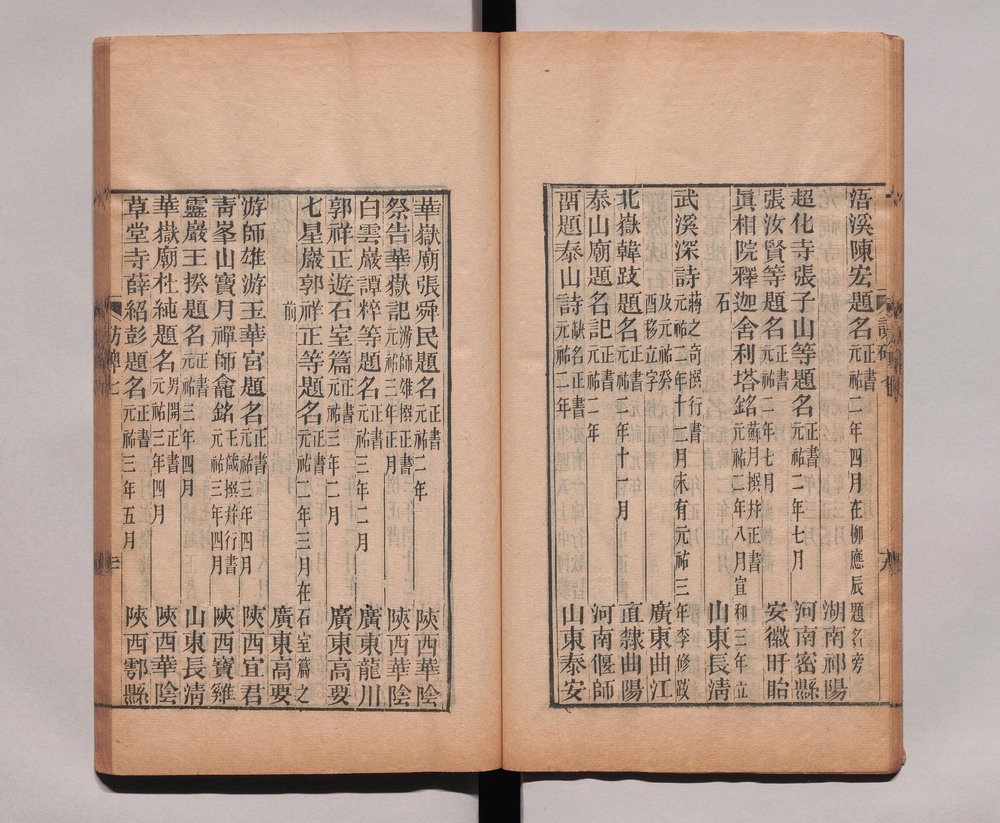 浯溪陳宏題名正書元祐二年四月在柳應辰題名旁
湖南祁陽
超化寺張子山等題名正書元祐二年七月
河南密縣
張汝賢等題名正書元祐二年七月
安徽盱眙
眞相院釋迦舍利塔銘蘇月撰并正書元祐二年八月宣和三年立
石
山東長淸
武溪深詩蔣之奇撰行書元祐二年十二月末有元祐三年李修跋
及元祐癸酉移立字
廣東曲江
北嶽韓跂題名正書元祐二年十一月
直隸曲陽
泰山廟題名記正書元祐二年
河南偃師
題泰山詩缺名正書元祐二年
山東泰安
華嶽廟張舜民題名正書元祐二年
陝西華陰
祭告華嶽記游師雄撰正書元祐三年正月
陝西華陰
白雲巖譚粹等題名正書元祐三年二月
廣東龍川
郭祥正遊石室篇正書元祐三年二月
廣東高要
七星巖郭祥正等題名正書元祐二年三月在石室篇之
前
廣東高要
游師雄游玉華宮題名正書元祐三年四月
陝西宜君
靑峯山寶月禪師龕銘王箴撰并行書元祐三年四月
陝西寶雞
靈巖王揆題名正書元祐三年四月
山東長淸
華嶽廟杜純題名男開正書元祐三年四月
陝西華陰
草堂寺薛紹彭題名正書元祐三年五月
陝西鄠縣
訪碑七